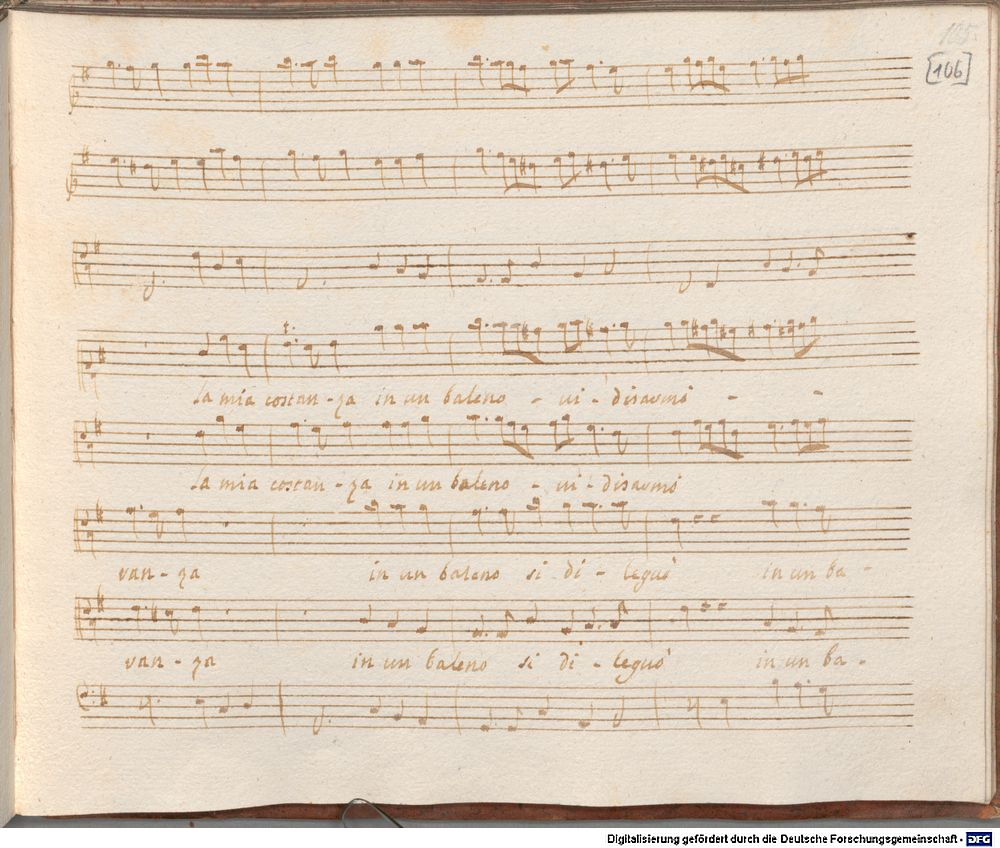 105.
[106]
la mia costan-za in un baleno - vi-disarmò - -
la mia costan-za in un baleno - vi-disarmò
ran-za in un baleno si di-leguò in un ba-
ran-za in un baleno si di-leguò in un ba-
Digitalisierung gefördert durch die Deutsche Forschungsgemeinschaft - DFG